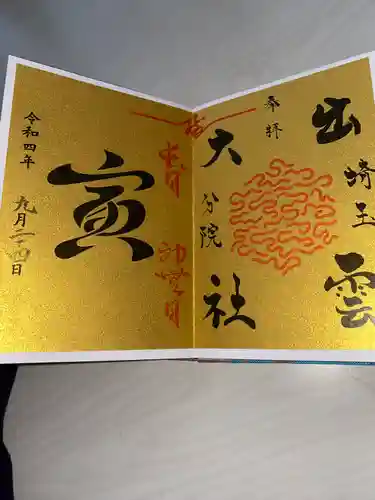 出雲
埼玉
奉拝
大社
分院
寅
令和四年
九月二十四日